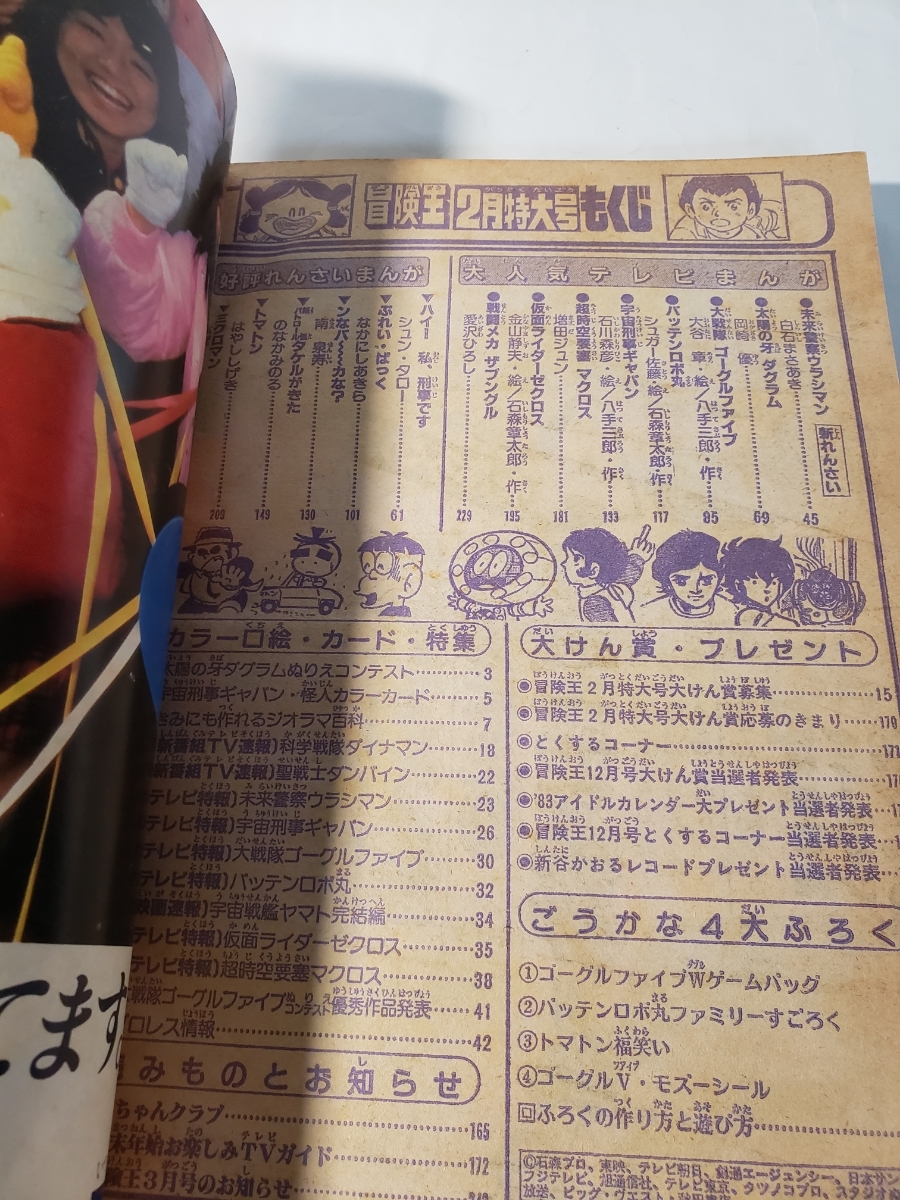 冒険王2月特大号もくじ
大人気テレビまんが
●未来警察ウラシマン 新れんさい
白石まさあき 45
●太陽の牙 ダグラム
岡崎 優 69
●大戦隊 ゴーグルファイブ
大谷 章・絵/八手三郎・作 85
●バッテンロボ丸
シュガー佐藤・絵/石森章太郎・作 117
●宇宙刑事ギャバン
石川森彦・絵/八手三郎・作 133
●超時空要塞 マクロス
増田ジュン 181
●仮面ライダーゼクロス
金山静夫・絵/石森章太郎・作 195
●戦闘メカ ザブングル
愛沢ひろし 229
好評れんさいまんが
▼ハイ! 私、刑事です
シュン・タロー 61
▼ぷれい・ばっく
なかにしあきら 101
▼ンなバ〜〜カな?
南 泉寿 130
タケルがきた
のなかみのる 149
▼トマトン
はやししげき 209
▼ミクロマン
カラー口絵・カード・特集
太陽の牙ダグラムぬりえコンテスト 3
宇宙刑事ギャバン・怪人カラーカード 5
きみにも作れるジオラマ百科 7
新番組TV速報)科学戦隊ダイナマン 18
新番組TV速報)聖戦士ダンバイン 22
テレビ特報)未来警察ウラシマン 23
テレビ特報)宇宙刑事ギャバン 26
テレビ特報)大戦隊ゴーグルファイブ 30
テレビ特報)バッテンロボ丸 32
映画速報)宇宙戦艦ヤマト完結編 34
テレビ特報)仮面ライダーゼクロス 35
テレビ特報)超時空要塞マクロス 38
戦隊ゴーグルファイブぬりえコンテスト優秀作品発表 41
プロレス情報 42
みものとお知らせ
ちゃんクラブ 165
末年始お楽しみTVガイド 172
険王3月号のお知らせ
大けん賞・プレゼント
◉冒険王2月特大号大けん賞募集 15
◉冒険王2月特大号大けん賞応募のきまり 170
◉とくするコーナー 171
◉冒険王12月号大けん賞当選者発表
◉'83アイドルカレンダー大プレゼント当選者発表
◉冒険王12月号とくするコーナー当選者発表
◉新谷かおるレコードプレゼント当選者発表
ごうかな4大ふろく
①ゴーグルファイブWゲームバッグ
②バッテンロボ丸ファミリーすごろく
③トマトン福笑い
④ゴーグルV・モズーシール
回ふろくの作り方と遊び方
©石森プロ、東映、テレビ朝日、創通エージェンシー、日本サン
フジテレビ、旭通信社、テレビ東京、タツノコプロ
放送、ビッグ・ウエスト
てます